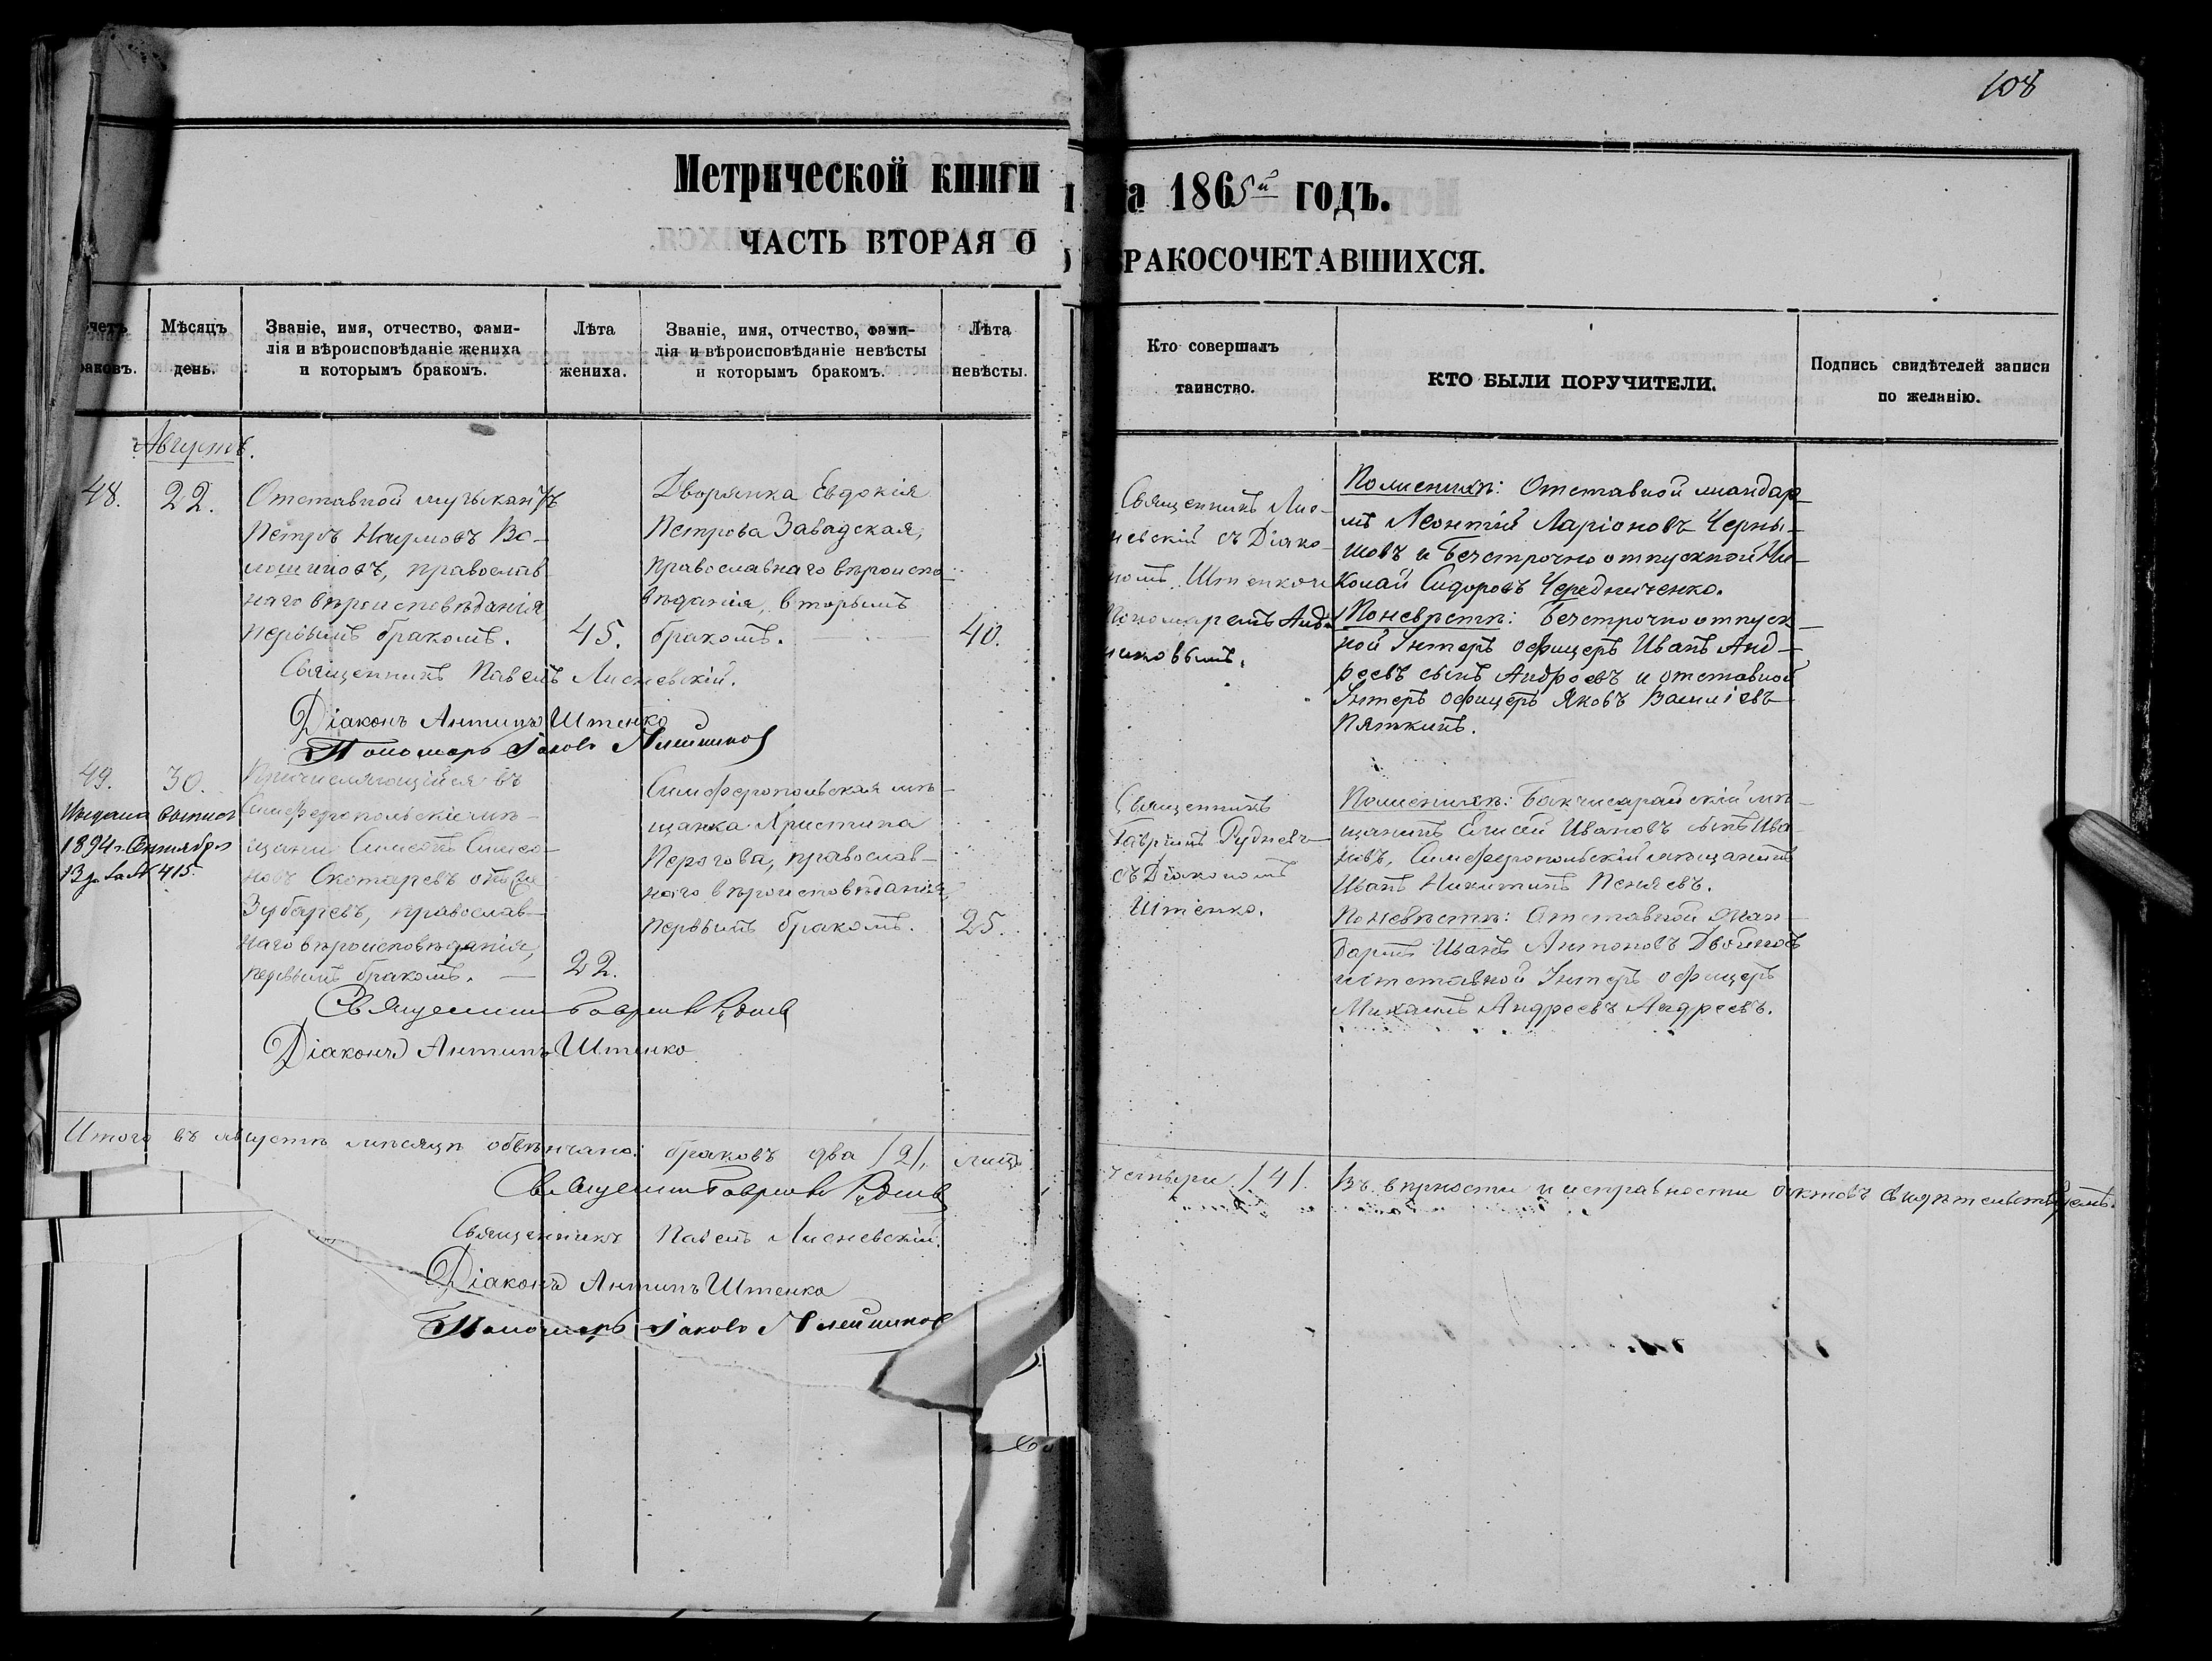 108
Метрической книги на 1865й годъ.
ЧАСТЬ ВТОРАЯ О БРАКОСОЧЕТАВШИХСЯ.
Счетъ браковъ.
Мѣсяцъ день.
Званіе, имя, отчество, фами-
лія и вѣроисповѣданіе жениха
и которымъ бракомъ.
Лѣта
жениха.
Званіе, имя, отчество, фами-
лія и вѣроисповѣданіе невѣсты
и которымъ бракомъ.
Лѣта
невѣсты.
Кто совершалъ
таинство.
КТО БЫЛИ ПОРУЧИТЕЛИ.
Подпись свидѣтелей записи
по желанію.
Августъ.
48.
22.
Отставной музыкантъ
Петръ Наумовъ Во-
лошиновъ, православ
наго вѣроисповѣданія
первымъ бракомъ.
45.
Дворянка Евдокія
Петрова Завадская,
православнаго вѣроиспо-
вѣданія, вторымъ
бракомъ.
40.
Священникъ Лис-
невскій съ Діако-
номъ Штенко и
Пономаремъ
Поженихѣ: Отставной жандар-
мъ Леонтій Ларіоновъ Черны-
шовъ и безсрочноотпускной Ни-
колай Сидоровъ Чередниченко.
Поневѣстѣ: Безсрочноотпуск-
ной Унтеръ офицеръ Иванъ Анд-
реевъ сынъ Андреевъ и отставной
Унтеръ офицеръ Яковъ Василіевъ
Пяткинъ.
Священникъ Павелъ Лисневскій.
Діаконъ Антипъ Штенко
Пономарь Іаковъ
49.
30.
Выдана выпись
1894 г. Сентября
13 д. за № 415.
Причисляющійся въ
Симферопольскіе мѣ-
щани Симеонъ Симео-
новъ Скотаревъ онъ же
Зубаревъ, православ-
наго вѣроисповѣданія,
первымъ бракомъ.
22.
Симферопольская мѣ-
щанка Христина
Перогова, православ-
наго вѣроисповѣданія
первымъ бракомъ.
25.
Священникъ
Гавріилъ Рудневъ
съ Діакономъ
Штенко.
Поженихѣ: Бакчисарайскій мѣ-
щанинъ Елисей Ивановъ сынъ Ива-
новъ, Симферопольскій мѣщанинъ
Иванъ Никитинъ Пеняевъ.
Поневѣстѣ: Отставной жан-
дармъ Иванъ Антоновъ
и отставной Унтеръ офицеръ
Михаилъ Андреевъ Андреевъ.
Священникъ Гавріилъ Рудневъ
Діаконъ Антипъ Штенко
Итого въ августѣ мѣсяцѣ обвѣнчано: браковъ два /2/, лицъ четыри /4/. Въ вѣрности и исправности актовъ свидѣтельствуемъ.
Священникъ Гавріилъ Рудневъ
Священникъ Павелъ Лисневскій.
Діаконъ Антипъ Штенко
Пономарь Іаковъ